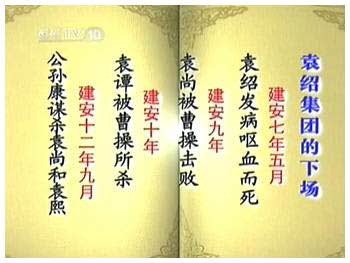 袁绍集团的下场
建安七年五月
袁绍发病呕血而死
建安九年
袁尚被曹操击败
建安十年
袁谭被曹操所杀
建安十二年九月
公孙康谋杀袁尚和袁熙